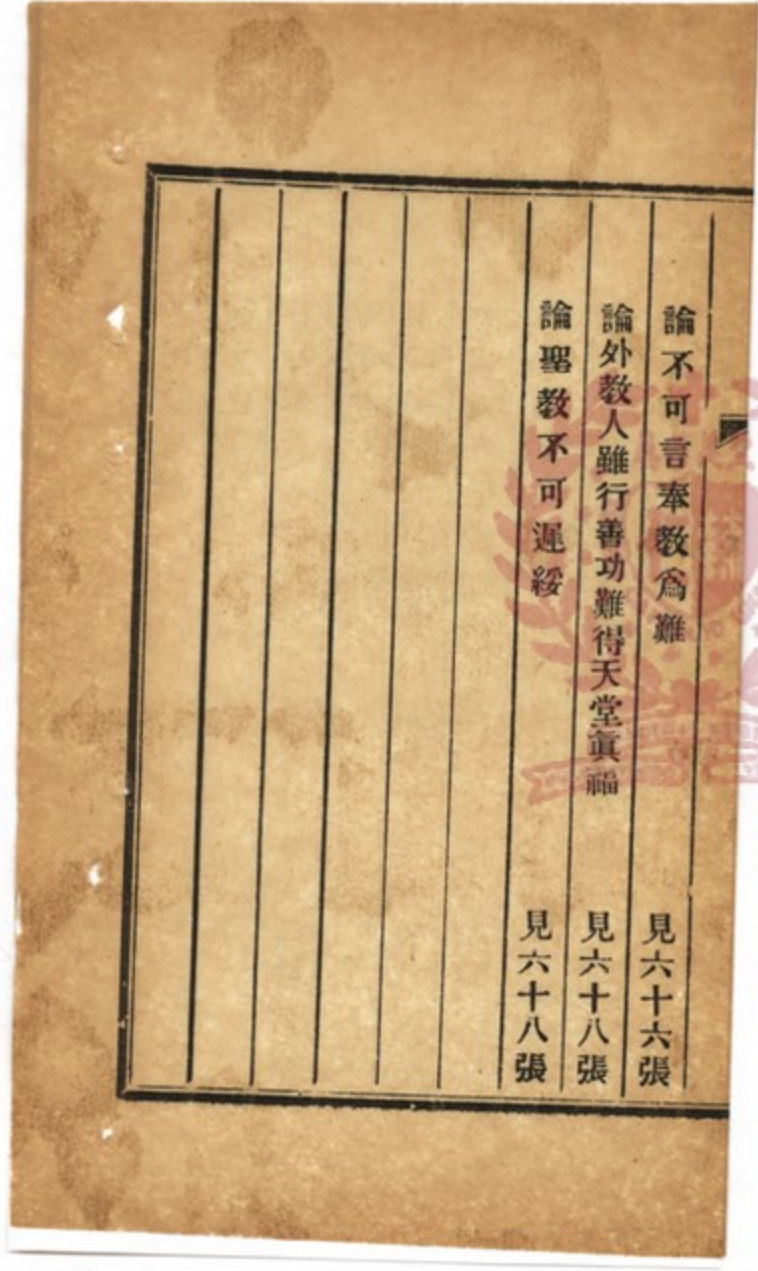 論不可言奉教爲難 見六十六張
論外教人雖行善功難得天堂眞福 見六十八張
論聖教不可遲綏 見六十八張